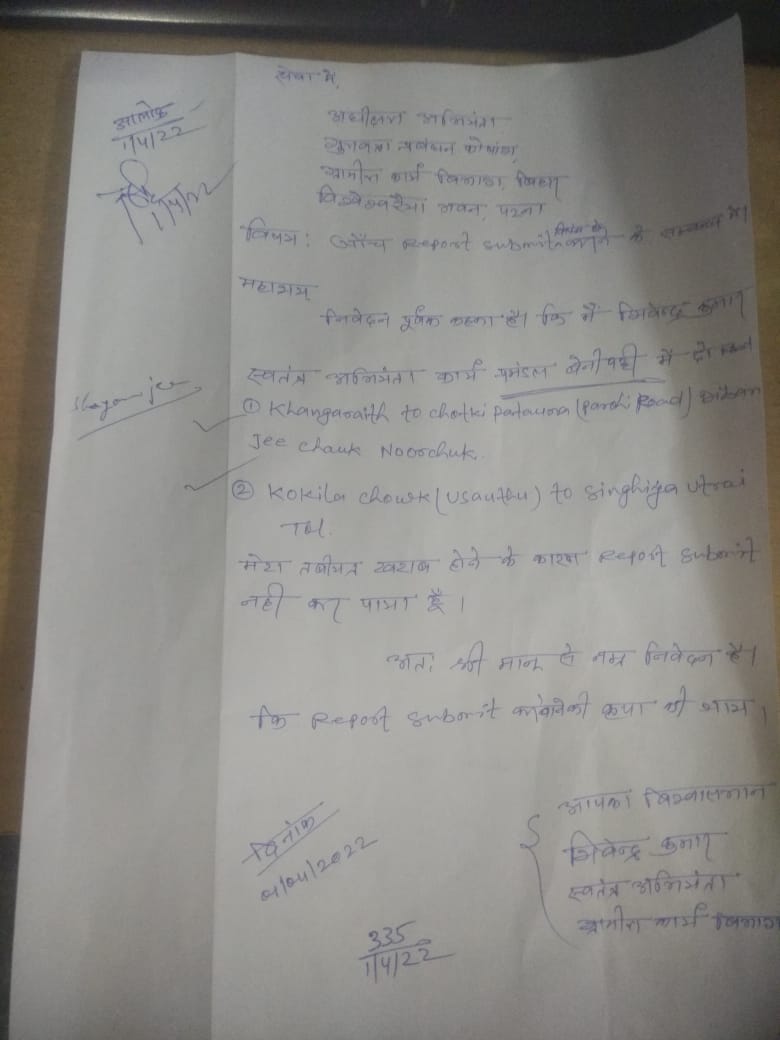 सेवा में,
आलोक
1/4/22
अधीक्षण अभियंता
गुणवत्ता प्रबंधन कोषांग,
ग्रामीण कार्य विभाग, बिहार
1/4/22
विश्वेश्वरैया भवन, पटना
विषय: जाँच Report submit करने के सम्बन्ध में।
महाशय
निवेदन पूर्वक कहना है। कि मैं कुमार
स्वतंत्र अभियंता कार्य प्रमंडल बेनीपट्टी में
① Khangaraith to chotki Patauna (Parohi Road)
Jee chauk Noorchuk.
② Kokila chowk (Usauthu) to Singhiya Utrai
Tol.
मेरा तबीयत खराब होने के कारण Report submit
नही कर पाया हूँ।
अत: श्री मान से नम्र निवेदन है।
कि Report submit कृपा की जाय।
आपका विश्वासभाजन
दिनांक
01/04/2022
कुमार
स्वतंत्र अभियंता
ग्रामीण कार्य विभाग
335
1/4/22